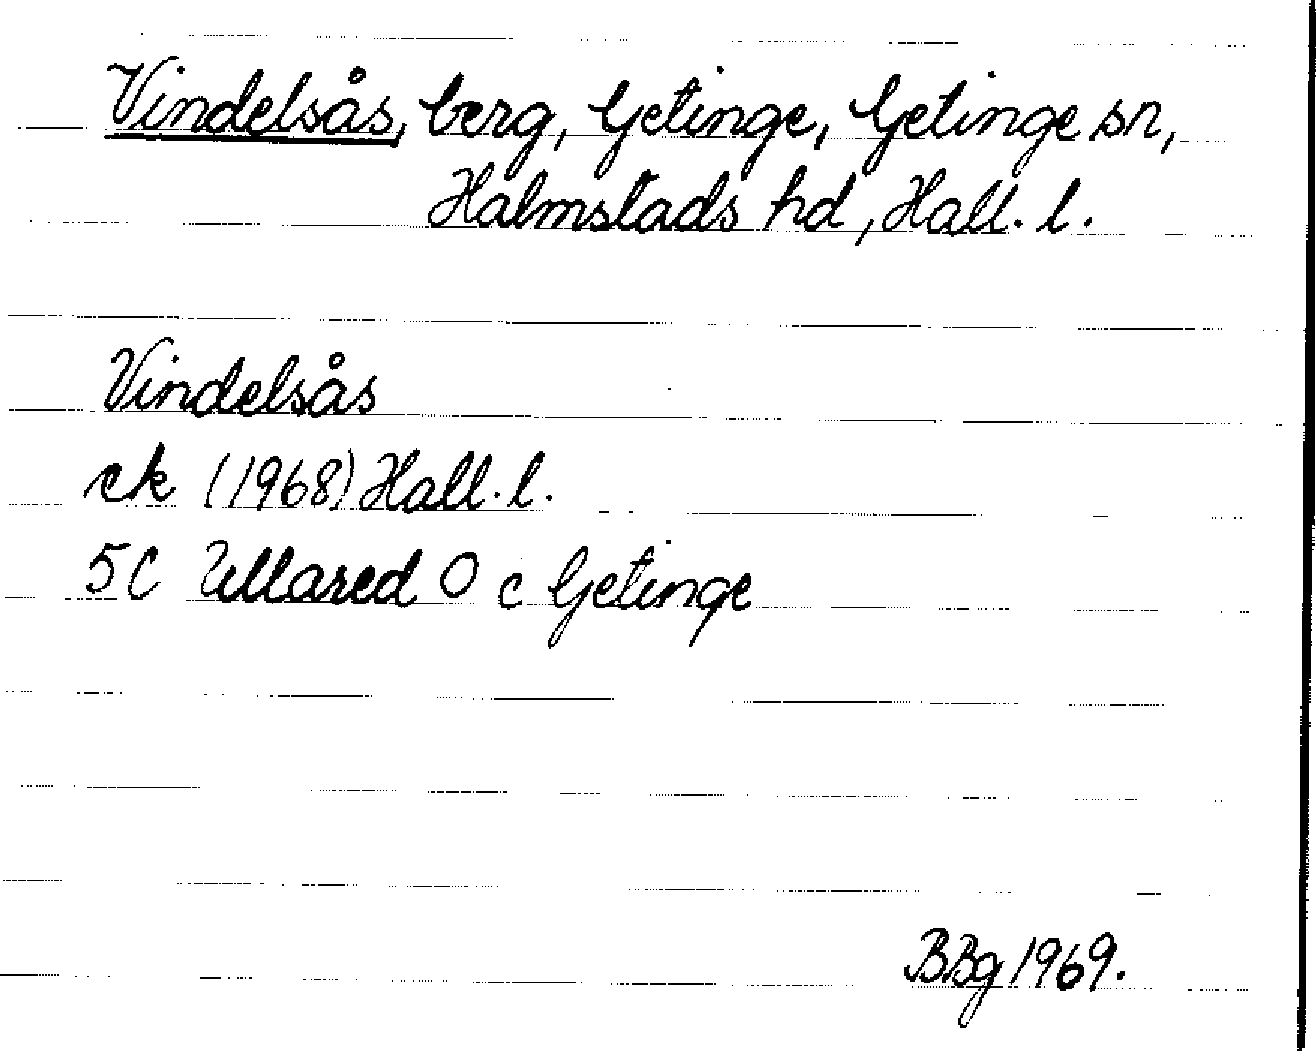 Vindelsås, berg, Getinge, Getinge sn,
Halmstads hd, Hall. l.
Vindelsås
ek (1968) Hall. l.
5C Ullared O c Getinge
BBg 1969.